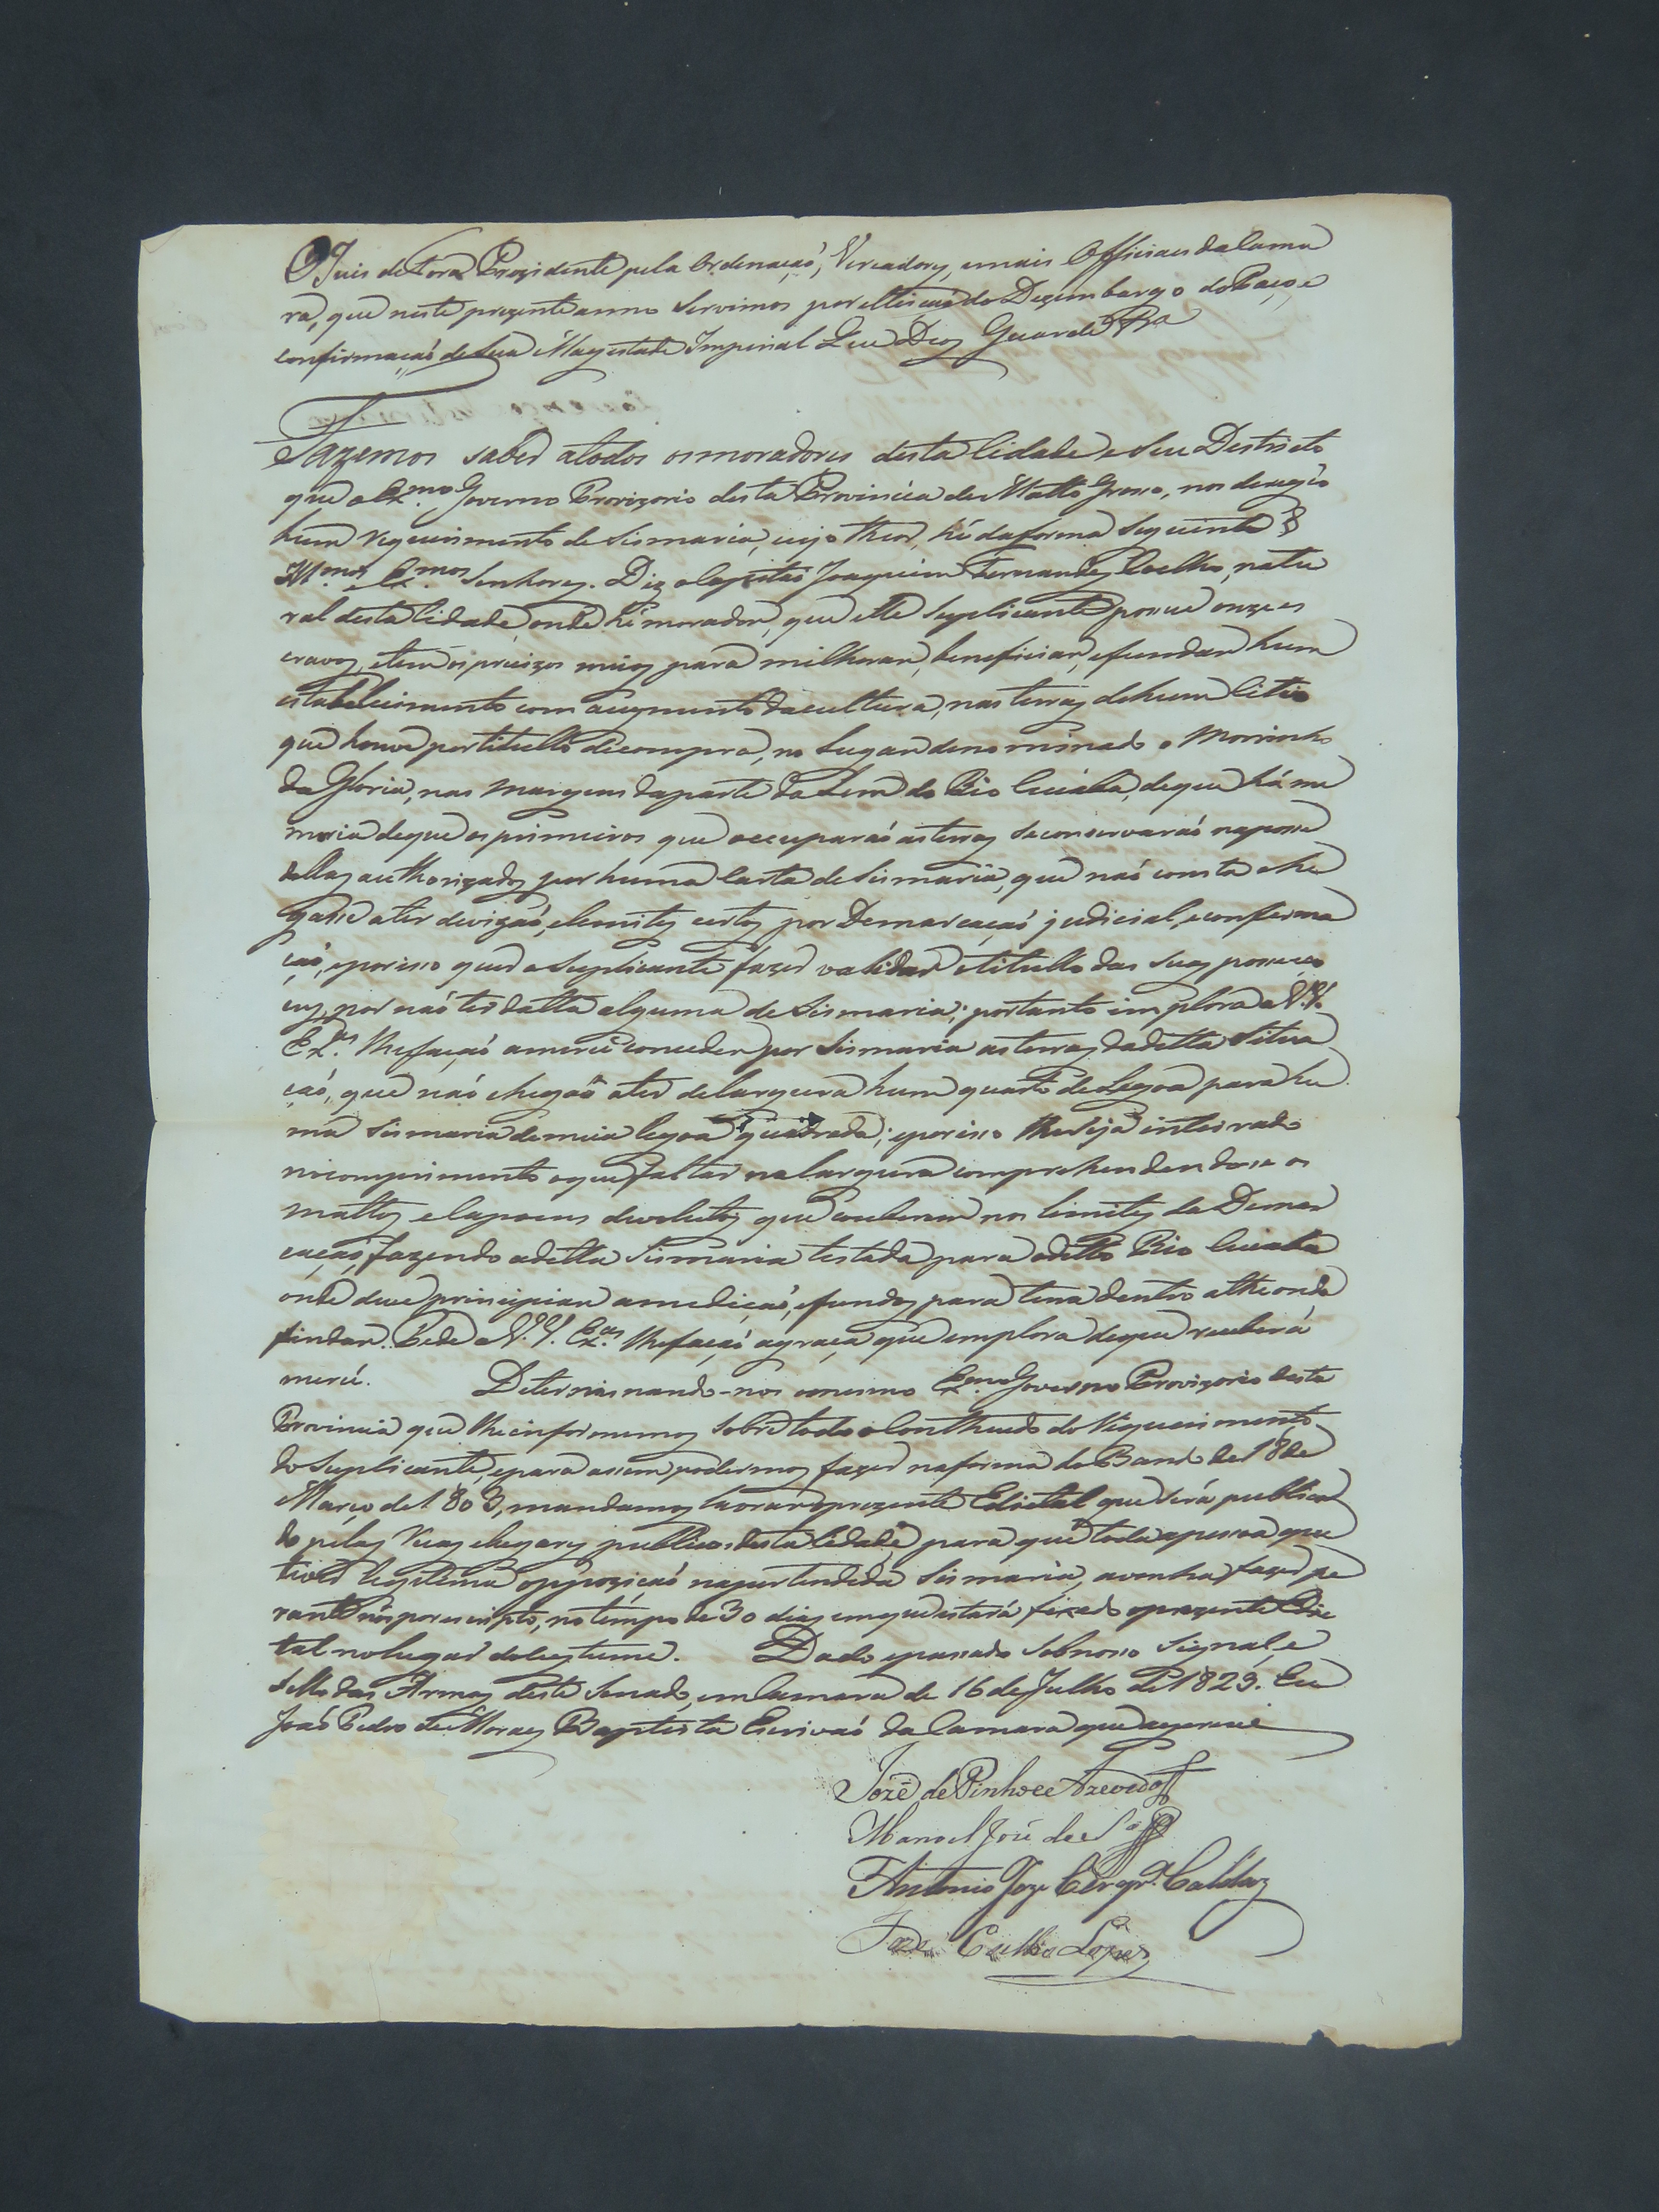 O Juis de Fora Prezidente pela Ordenaçaó, Vereadores, emais Officiaes da Cama
ra, que neste prezente anno Servimos por elleiçaó do Dezembargo do Paço, e
confirmaçaó de Sua Magestade Imperial Que Deos Guarde &ra
Fazemos saber atodos osmoradores desta Cidade e Seu Destricto
que o Exmo. Governo Provizorio desta Provincia de Matto Grosso, nos deregio
hum requerimento de Sismaria, cujo theor, hé daforma seguinte
Illmos. e Exmos. Senhores. Diz o Capitaó Joaquim Fernandes Coelho, natu
ral desta Cidade, onde hé morador, que elle Suplicante possue onze es
cravos, etem os precizos meios para milhorar, beneficiar, efundar hum
estabelecimento com augmento dacultura, nas terras dehum Citio
que houve portitullo decompra, no Lugar denominado o Morrinho
da Gloria, nas margens daparte da Serra do Rio Cuiaba, deque há me
moria deque os primeiros que occuparaó as terras seconservaraó naposse
dellas authorizados por huma Carta de Sismaria, que naó consta che
gasse ater devizaó, elemites certos por Demarcaçaó judicial, econfirma
çaó, eporisso quer o Suplicante fazer validar otitullo das suas possesso
ens, por naó ter datta alguma de Sismaria; portanto implora a V.V.
Exas. lhefaçaó amercê conceder por Sismaria as terras dadita Situa
çaó, que naó chegaó ater delargura hum quarto de Legoa para hu
ma Sismaria demeia legoa quadrada; eporisso lheseja inteirado
nocomprimento oque faltar nalargura comprehendendose os
mattos, e Capoens devolutos que couberem nos limites da Demar
caçaó, fazendo adetta Sismaria testada para odetto Rio Cuiaba
onde deve principiar amediçaó, efundos para terra dentro athe onde
findar. Pede a V.V. Exas. lhefaçaó agraça que emplora deque receberá
mercê. Determinando-nos omesmo Exmo. Governo Provizorio desta
Provincia que lheinformemos Sobre todo o Contheudo do Requerimento
do Suplicante, epara assim podermos fazer naforma do Bando de 18 de
Março de 1803, mandamos lavrar oprezente Edictal que será publica
do pelas Ruas elugares publicos desta Cidade, para que toda apessoa que
tiver legitima oppoziçaó napertendida Sismaria, avenha fazer pe
rante nós por escripto, no tempo de 30 dias emque estará fixado oprezente Edic
tal nolugar docustume. Dado epassado Sobnosso Signal, e
Sello das Armas deste Senado, em Camara de 16 de Julho de 1823. Eu
Joaó Pedro de Moraes Baptista Escrivaó da Camara que o escrevi
Jozé de Pinho e Azevedo
Manoel José de
Antonio Joze Caldas
Joze Lopes